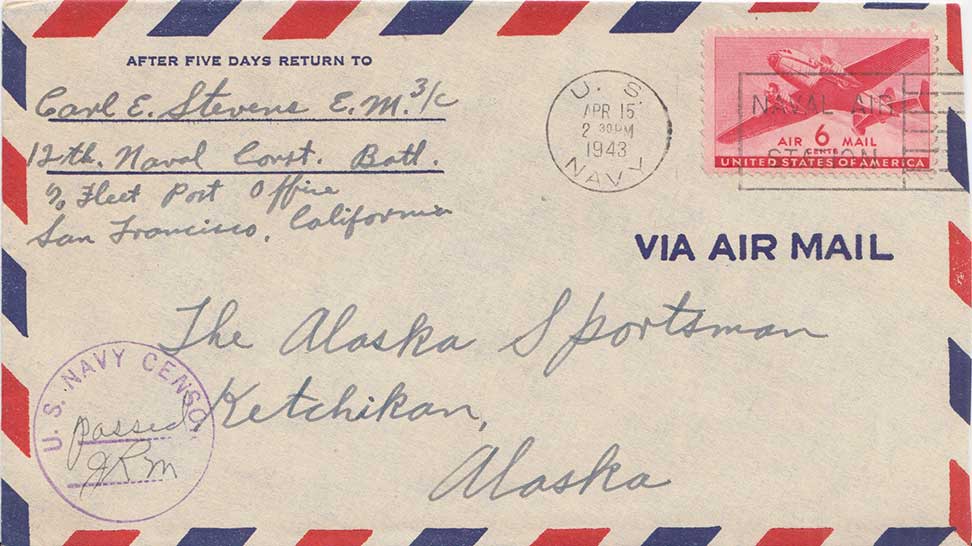 AFTER FIVE DAYS RETURN TO
Carl E. Stevens E.M. 3/c
12th. Naval Const. Batl.
c/o Fleet Post Office
San Francisco, California
U. S.
APR 15
2 30 PM
1943
NAVY
NAVAL AIR
STATION
AIR 6 MAIL
CENTS
UNITED STATES OF AMERICA
VIA AIR MAIL
The Alaska Sportsman
Ketchikan,
Alaska
U.S. NAVY CENSOR
passed
JRM